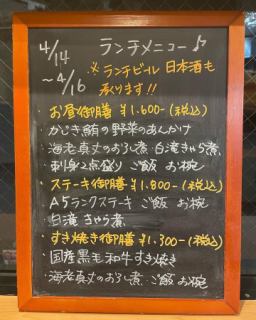 4/14
〜4/16
ランチメニュー♪
※ランチビール 日本酒も
承ります!!
・お昼御膳 ¥1.600-(税込)
・かじき鮪の野菜のあんかけ
・海老真丈のおろし煮 白滝きゃら煮
・刺身2点盛り ご飯 お椀
・ステーキ御膳 ¥1.800-(税込)
・A5ランクステーキ ご飯 お椀
・白滝 きゃら煮
・すき焼き御膳 ¥1.300-(税込)
・国産黒毛和牛すき焼き
・海老真丈のおろし煮 ご飯 お椀